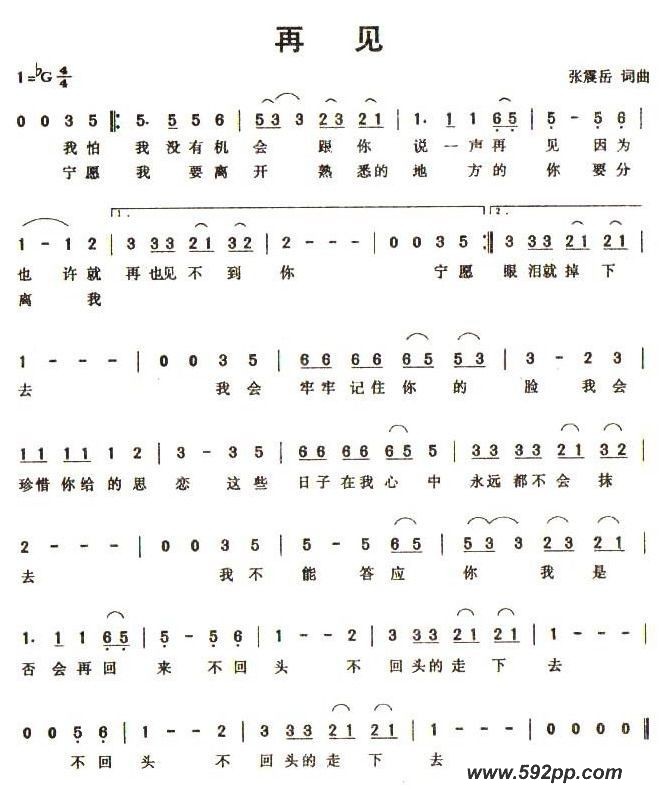 再 见
1=♭G 4/4
张震岳 词曲
0 0 3 5 ‖: 5· 5 5 6 | 5 3 3 2 3 2 1 | 1· 1 1 6 5 | 5 - 5 6 |
我怕 我 没有机 会 跟你 说 一声再 见 因为
宁愿 我 要离 开 熟悉的 地 方的 你 要分
1. 2.
1 - 1 2 | 3 3 3 2 1 3 2 | 2 - - - | 0 0 3 5 :‖ 3 3 3 2 1 2 1 |
也 许就 再也见不到 你 宁愿 眼泪就掉下
离 我
1 - - - | 0 0 3 5 | 6 6 6 6 6 5 5 3 | 3 - 2 3 |
去 我会 牢牢记住你 的 脸 我会
1 1 1 1 1 2 | 3 - 3 5 | 6 6 6 6 6 5 5 | 3 3 3 3 2 1 3 2 |
珍惜你给的思 恋 这些 日子在我心 中 永远都不会 抹
2 - - - | 0 0 3 5 | 5 - 5 6 5 | 5 3 3 3 2 3 2 1 |
去 我不 能 答应 你 我 是
1· 1 1 6 5 | 5 - 5 6 | 1 - - 2 | 3 3 3 2 1 2 1 | 1 - - - |
否 会再回 来 不回 头 不 回头的走 下 去
0 0 5 6 | 1 - - 2 | 3 3 3 2 1 2 1 | 1 - - - | 0 0 0 0 ‖
不回 头 不 回头的走 下 去
www.592pp.com